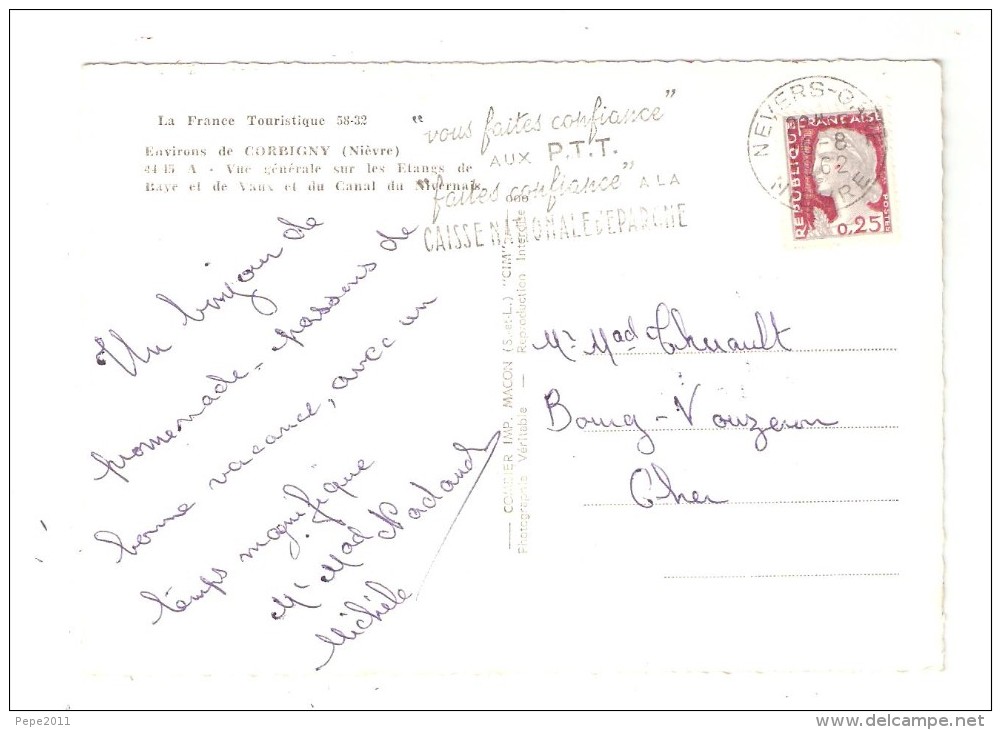 La France Touristique 58-32
Environs de CORBIGNY (Nièvre)
44-45 A - Vue générale sur les Etangs de
Baye et de Vaux et du Canal du Nivernais
"vous faites confiance"
AUX P.T.T.
"faites confiance" A LA
CAISSE NATIONALE D'EPARGNE
NEVERS-G
-8
62
REPUBLIQUE FRANÇAISE
POSTES
0,25
Un bonjour de
promenade - passons de
bonne vacance, avec un
temps magnifique
Mr Mad Nadaud
Michèle
COMBIER IMP. MACON (S.-et-L.) "CIM"
Photographie Véritable — Reproduction Interdite
Mr Mad Thuault
Bourg - Vouzeron
Cher
Pepe2011
www.delcampe.net